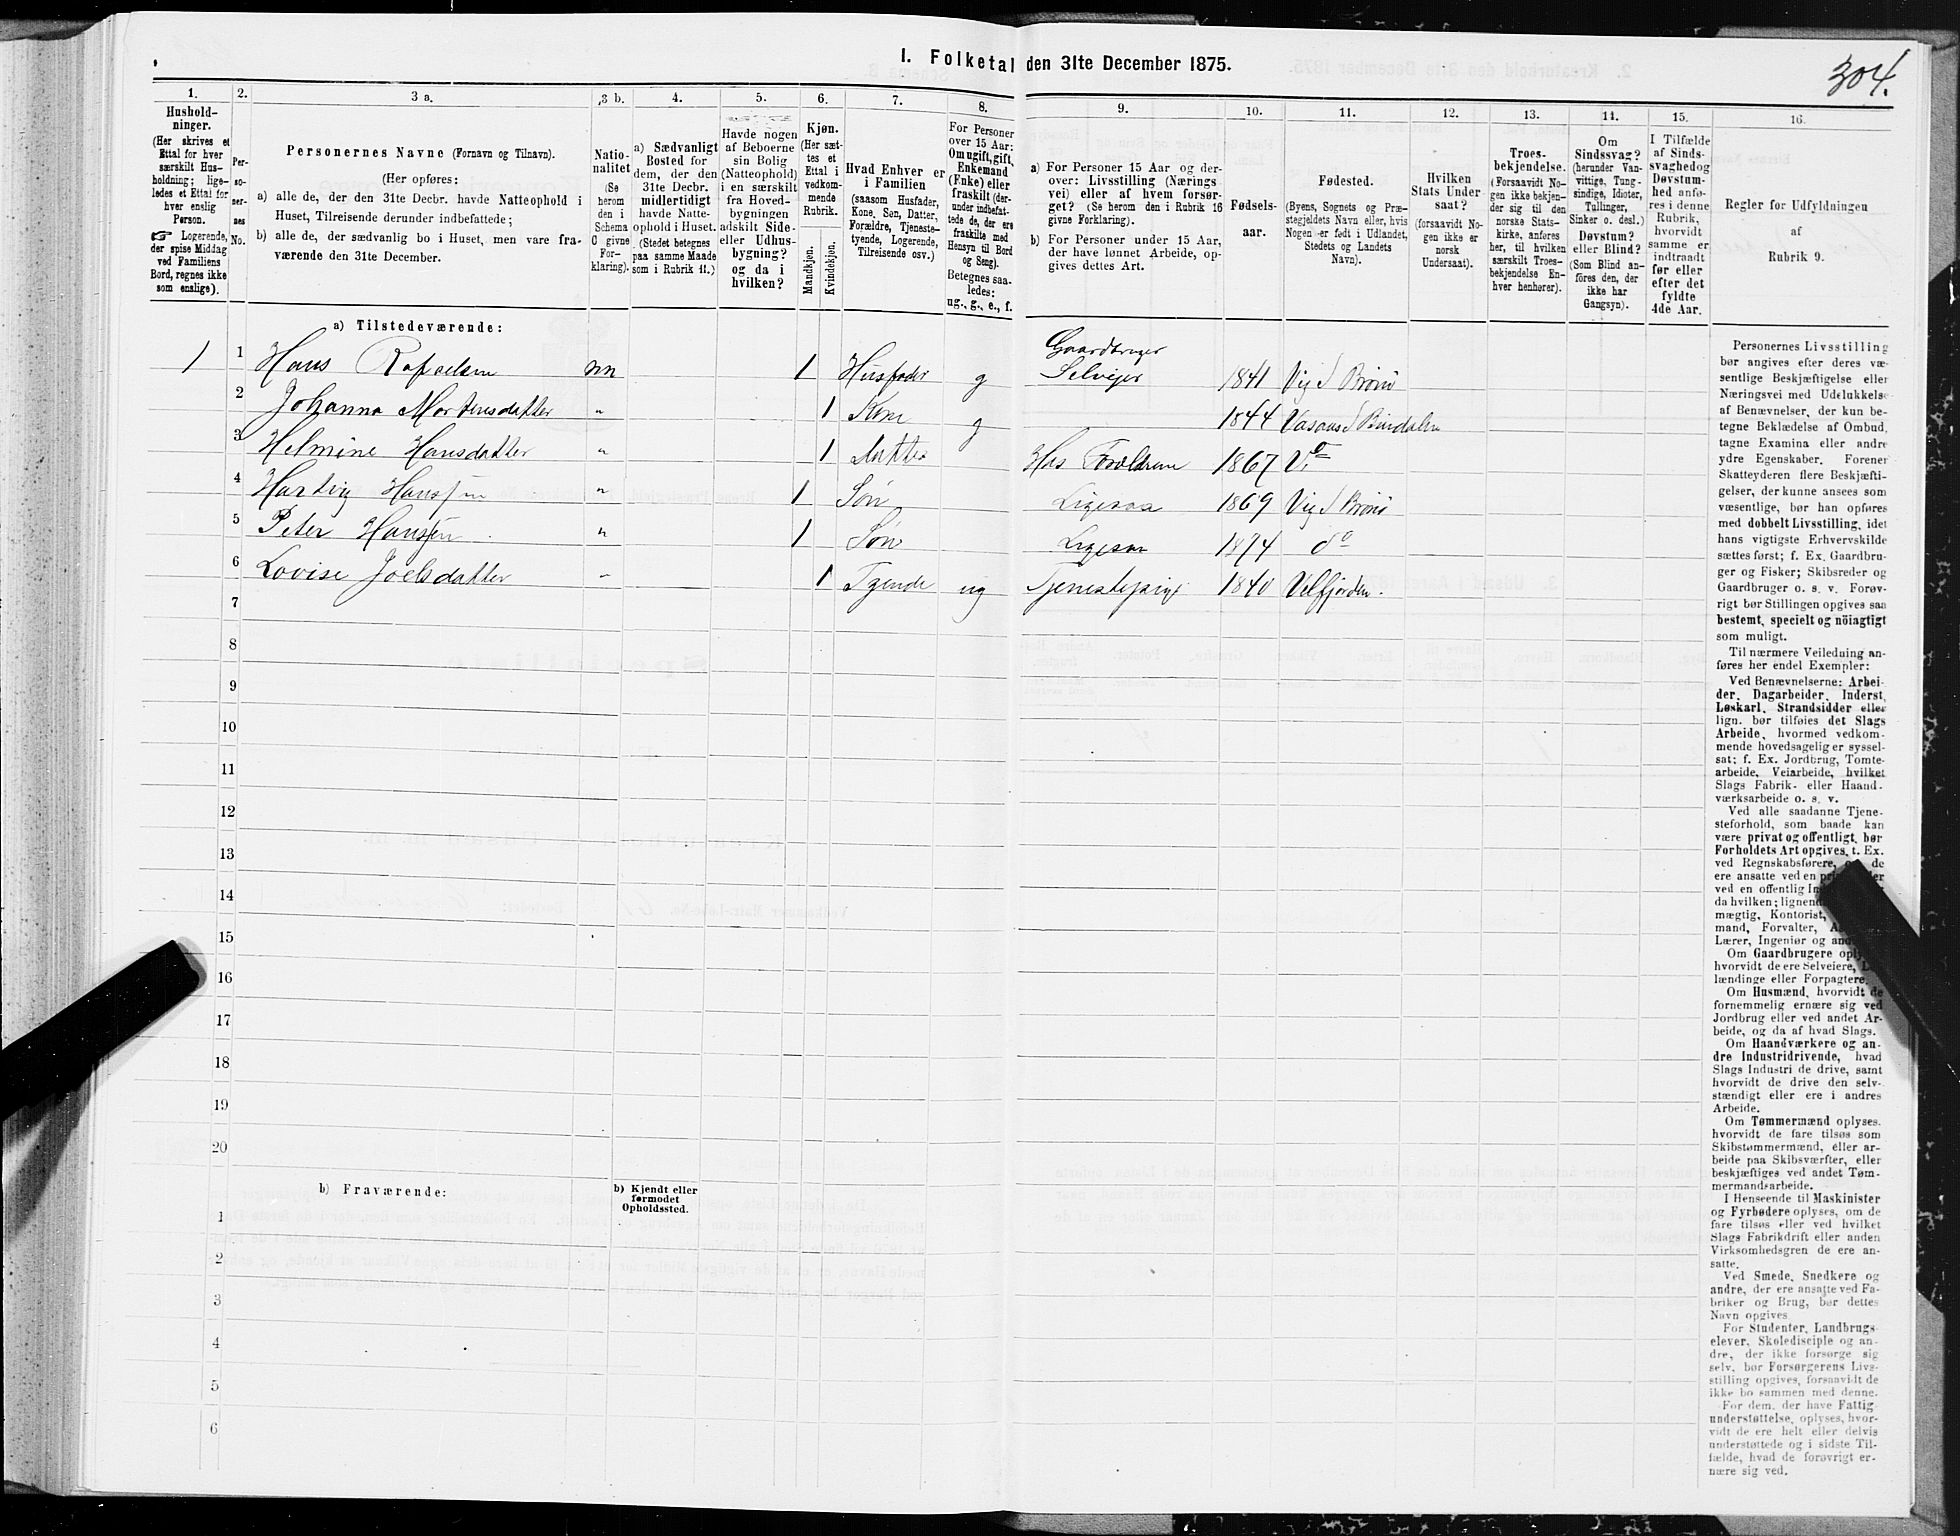 I. Folketal den 31te December 1875.
304.
1.
Hushold-
ninger.
(Her skrives et
Ettal for hver
særskilt Hus-
holdning; lige-
ledes et Ettal for
hver enslig
Person.
☞ Logerende,
der spise Middag
ved Familiens
Bord, regnes ikke
som enslige).
2.
Per-
so-
ner-
nes
No.
3 a.
Personernes Navne (Fornavn og Tilnavn).
(Her opføres:
a) alle de, der den 31te Decbr. havde Natteophold i
Huset, Tilreisende derunder indbefattede;
b) alle de, der sædvanlig bo i Huset, men vare fra-
værende den 31te December.
3 b.
Natio-
nalitet
(Se
herom
den i
Schema
C givne
For-
klaring).
4.
a) Sædvanligt
Bosted for
dem, der den
31te Decbr.
midlertidigt
havde Natte-
ophold i Huset.
(Stedet betegnes
paa samme Maade
som i Rubrik 11.)
5.
Havde nogen
af Beboerne
sin Bolig
(Natteophold)
i en særskilt
fra Hoved-
bygningen
adskilt Side-
eller Udhus-
bygning?
og da i
hvilken?
6.
Kjøn.
(Her sæt-
tes et
Ettal i
vedkom-
mende
Rubrik.
Mandkjøn.
Kvindekjøn.
7.
Hvad Enhver er
i Familien
(saasom Husfader,
Kone, Søn, Datter,
Forældre, Tjeneste-
tyende, Logerende,
Tilreisende osv.)
8.
For Personer
over 15 Aar:
Om ugift, gift,
Enkemand
(Enke) eller
fraskilt (der-
under indbefat-
tede de, der ere
fraskilte med
Hensyn til Bord
og Seng).
Betegnes saa-
ledes:
ug., g., e., f.
9.
a) For Personer 15 Aar og der-
over: Livsstilling (Nærings-
vei) eller af hvem forsør-
get? (Se herom den i Rubrik 16
givne Forklaring).
b) For Personer under 15 Aar,
der have lønnet Arbeide, op-
gives dettes Art.
10.
Fødsels-
aar.
11.
Fødested.
(Byens, Sognets og Præ-
stegjeldets Navn eller, hvis
Nogen er født i Udlandet,
Stedets og Landets
Navn).
12.
Hvilken
Stats Under-
saat?
(forsaavidt No-
gen ikke er
norsk
Undersaat).
13.
Troes-
bekjendelse.
(Forsaavidt No-
gen ikke bekjen-
der sig til den
norske Stats-
kirke, anføres
her, til hvilken
særskilt Troes-
bekjendelse En-
hver henhører).
14.
Om
Sindssvag?
(herunder Van-
vittige, Tung-
sindige, Idioter,
Tullinger,
Sinker o. desl.)
Døvstum?
eller Blind?
(Som Blind an-
føres den, der
ikke har
Gangsyn).
15.
I Tilfælde
af Sinds-
svaghed og
Døvstum-
hed anfø-
res i denne
Rubrik,
hvorvidt
samme er
indtraadt
før eller
efter det
fyldte
4de Aar.
16.
Regler for Udfyldningen
af
Rubrik 9.
a) Tilstedeværende:
1 1 Hans Rafaelsen nn 1 Husfader g Gaardbruger
Selvejer 1841 Vig S Brønø
2 Johanna Mortensdatter " 1 Kone g 1844 Vasaas S Bindalen
3 Helmine Hansdatter " 1 Datter Hos Forældrene 1867
4 Hartvig Hanssen " 1 Søn Ligesaa 1869 Vig S Brønø
5 Peter Hanssen " 1 Søn Ligesaa 1874 do
6 Lovise Joelsdatter " 1 Tyende ug Tjenestepige 1840 Velfjorden.
7
8
9
10
11
12
13
14
15
16
17
18
19
20
b) Fraværende:
b) Kjendt eller
formodet
Opholdssted.
1
2
3
4
5
6
Personernes Livsstilling
bør angives efter deres væ-
sentlige Beskjæftigelse eller
Næringsvei med Udelukkelse
af Benævnelser, der kun be-
tegne Beklædelse af Ombud,
tagne Examina eller andre
ydre Egenskaber. Forener
Skatteyderen flere Beskjæfti-
gelser, der kunne ansees som
væsentlige, bør han opføres
med dobbelt Livsstilling, idet
hans vigtigste Erhvervskilde
sættes først; f. Ex. Gaardbru-
ger og Fisker; Skibsreder og
Gaardbruger o. s. v. Forøv-
rigt bør Stillingen opgives saa
bestemt, specielt og nöiagtigt
som muligt.
Til nærmere Veiledning an-
føres her endel Exempler:
Ved Benævnelserne: Arbei-
der, Dagarbeider, Inderst,
Løskarl, Strandsidder eller
lign. bør tilføies det Slags
Arbeide, hvormed vedkom-
mende hovedsagelig er syssel-
sat; f. Ex. Jordbrug, Tomte-
arbeide, Veiarbeide, hvilket
Slags Fabrik- eller Haand-
værksarbeide o. s. v.
Ved alle saadanne Tjene-
steforhold, som baade kan
være privat og offentligt, bør
Forholdets Art opgives, t. Ex.
ved Regnskabsførere, de
ere ansatte ved en
ved en offentlig
da hvilken;
mægtig, Kontorist,
mand, Forvalter,
Lærer, Ingeniør og
Om Gaardbrugere
hvorvidt de ere Selveiere,
lændinge eller Forpagtere.
Om Husmænd, hvorvidt de
fornemmelig ernære sig ved
Jordbrug eller ved andet Ar-
beide, og da af hvad Slags.
Om Haandværkere og an-
dre Industridrivende, hvad
Slags Industri de drive, samt
hvorvidt de drive den selv-
stændigt eller ere i andres
Arbeide.
Om Tømmermænd oplyses,
hvorvidt de fare tilsøs som
Skibstømmermænd, eller ar-
beide paa Skibsværfter, eller
beskjæftiges ved andet Tøm-
mermandsarbeide.
I Henseende til Maskinister
og Fyrbødere oplyses, om de
fare tilsøs eller ved hvilket
Slags Fabrikdrift eller anden
Virksomhedsgren de ere an-
satte.
Ved Smede, Snedkere og
andre, der ere ansatte ved Fa-
briker og Brug, bør dettes
Navn opgives
For Studenter, Landbrugs-
elever, Skoledisciple og an-
dre, der ikke forsørge sig
selv, bør Forsørgerens Livs-
stilling opgives, forsaavidt de
ikke bo sammen med denne.
For dem, der have Fattig-
understøttelse, oplyses, hvor-
vidt de ere helt eller delvis
understøttede og i sidste Til-
fælde, hvad de forøvrigt er-
nære sig ved.